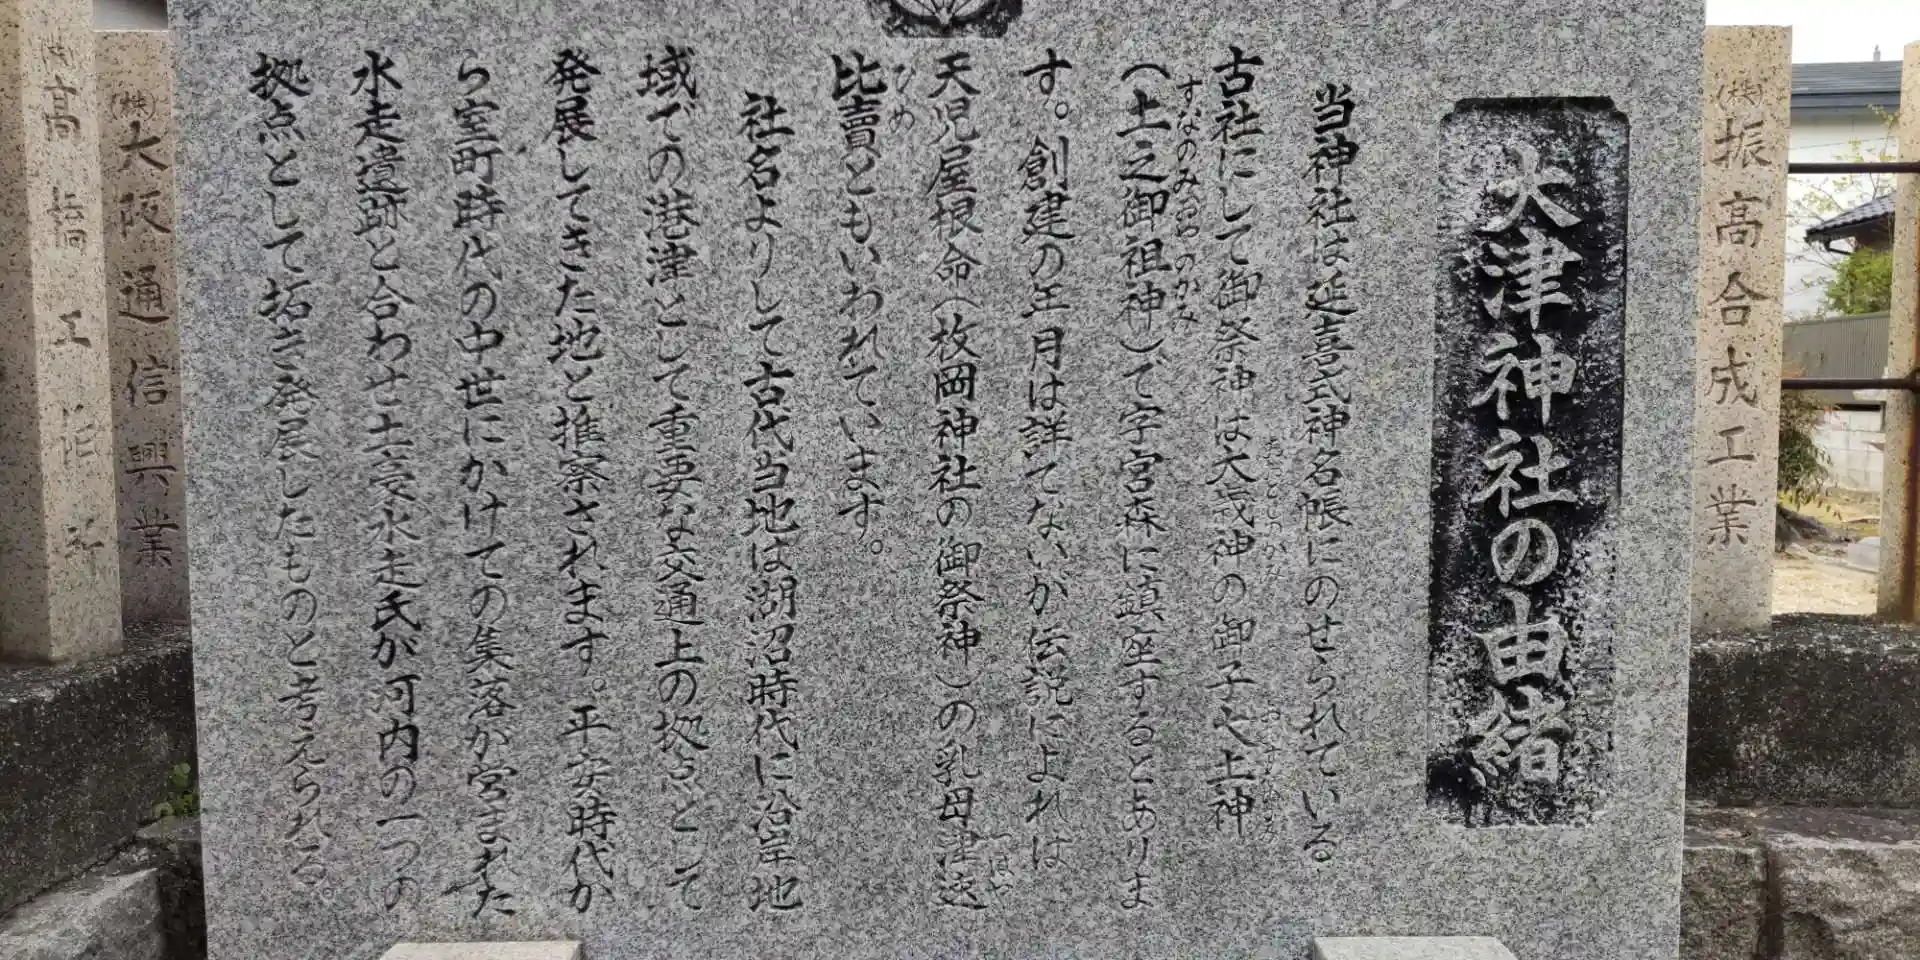 大津神社の由緒
当神社は延喜式神名帳にのせられている
古社にして御祭神は大歳神の御子大土神
おおとしのかみ
おおつちのかみ
(土之御祖神)で字宮森に鎮座するとありま
す。創建の年月は詳でないが伝説によれは
天児屋根命(枚岡神社の御祭神)の乳母津速
つはや
比賣ともいわれています。
ひめ
社名よりして古代当地は湖沼時代に沿岸地
域での港津として重要な交通上の拠点として
発展してきた地と推察されます。平安時代か
ら室町時代の中世にかけての集落が営まれた
水走遺跡と合わせ土豪水走氏が河内の一つの
拠点として拓き発展したものと考えられる。
(株)振高合成工業
(株)大阪通信興業
(株)高橋工作所